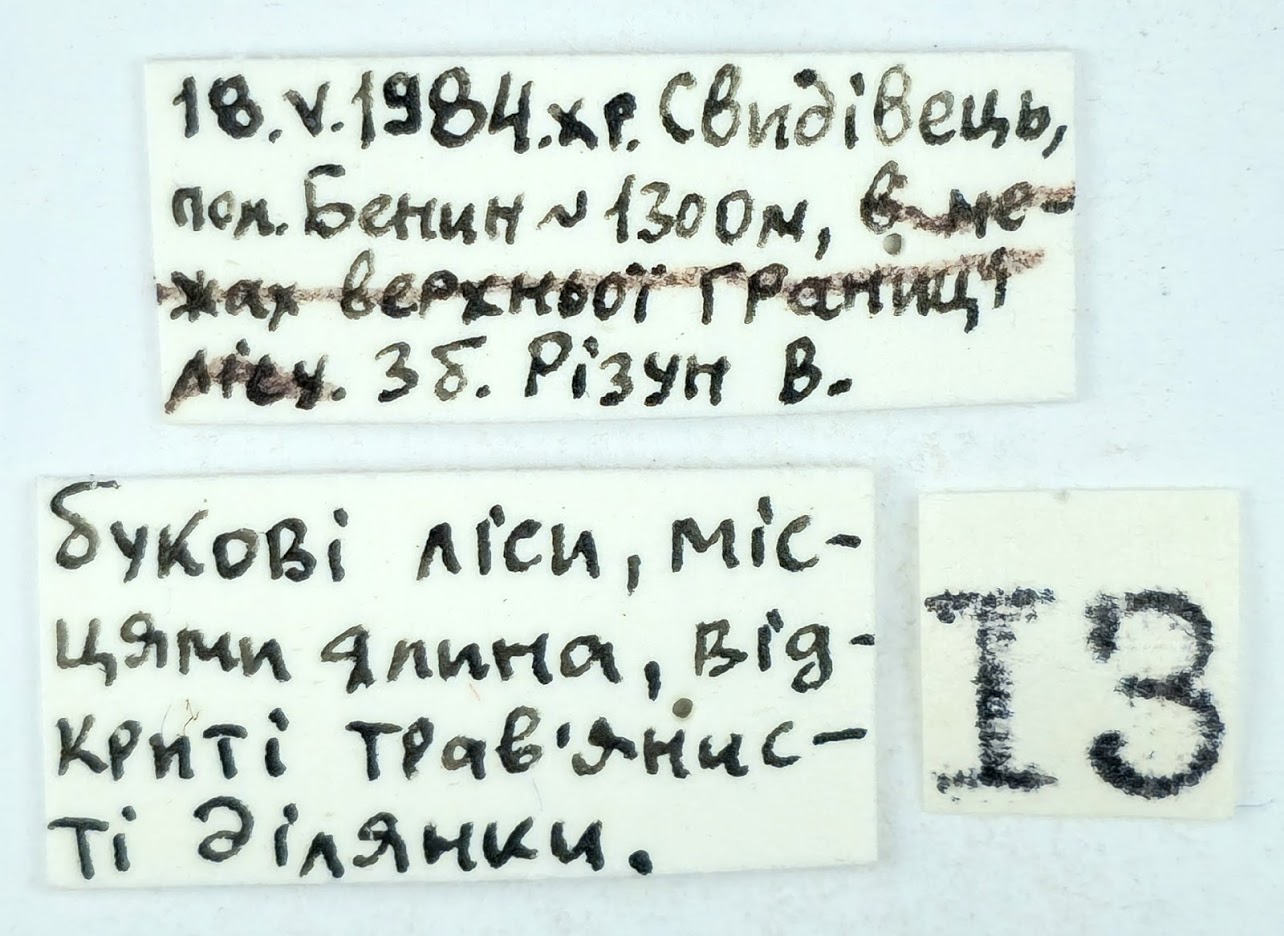 18.V.1984.хр. Свидівець,
пол. Бенин ~ 1300м, в ме-
жах верхньої границі
лісу. Зб. Різун В.
букові ліси, міс-
цями ялина, від-
криті трав'янис-
ті ділянки.
I3